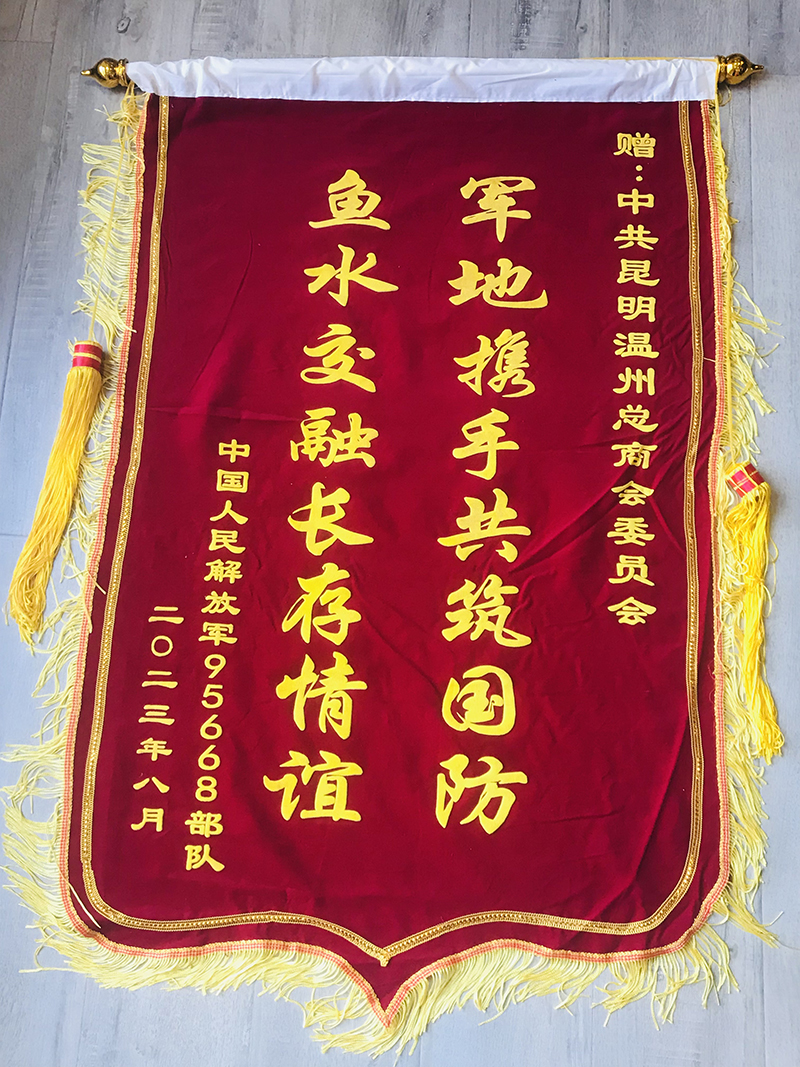 赠：中共昆明温州总商会委员会
军地携手共筑国防
鱼水交融长存情谊
中国人民解放军95668部队
二〇二三年八月